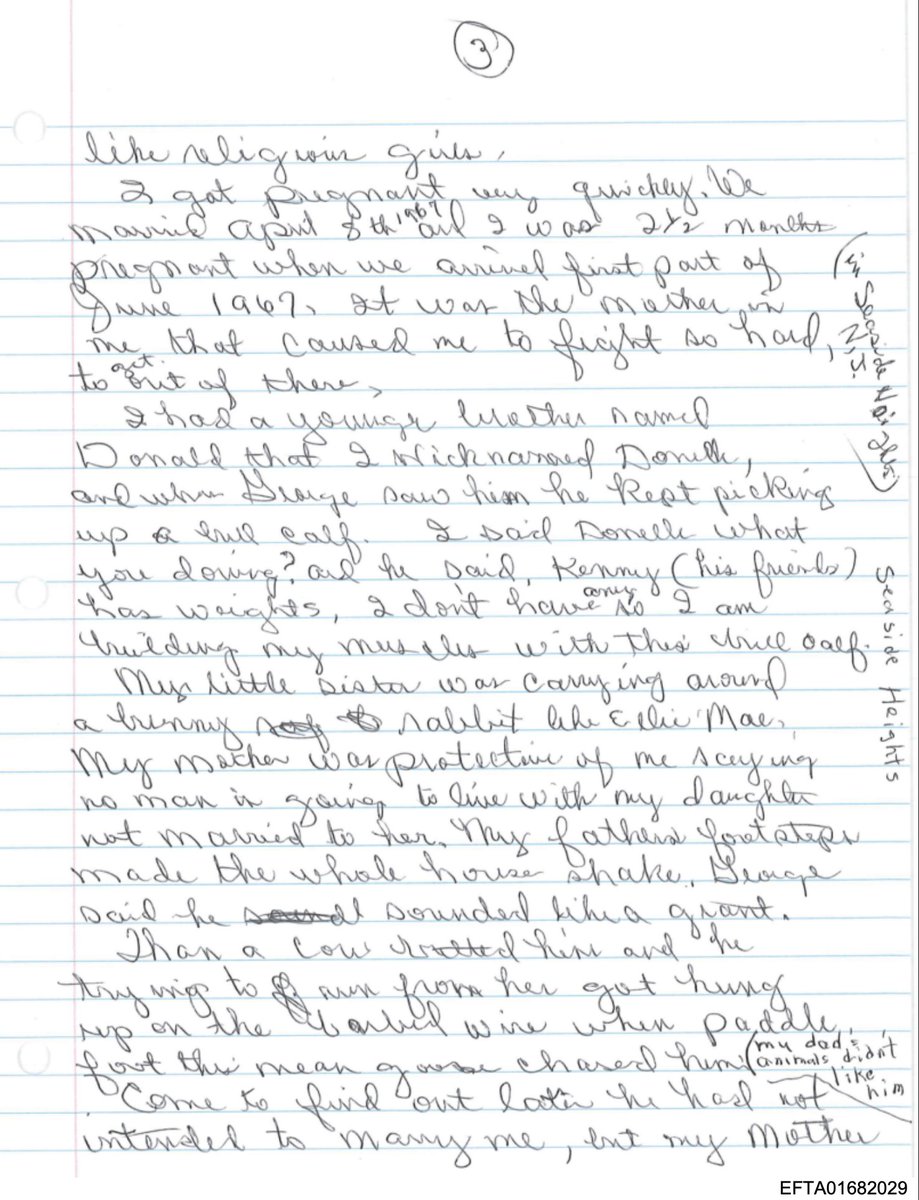 3
like religious girls,
I got pregnant very quickly. We
married April 8th 1967 and I was 2½ months
pregnant when we arrived first part of
June 1967. It was the mother in
me that caused me to fight so hard,
to get out of there,
(in Seaside Heights N.J.)
I had a younger brother named
Donald that I nicknamed Donelle,
and when George saw him he kept picking
up a bull calf. I said Donelle what
you doing? and he said, Kenny (his friends)
has weights, I don't have any so I am
building my muscles with this bull calf.
Seaside Heights
My little sister was carrying around
a bunny rabbit like Ellie Mae.
My mother was protective of me saying
no man is going to live with my daughter
not married to her. My fathers footsteps
made the whole house shake. George
said he sounded like a giant.
Than a cow him and he
trying to run from her got hung
up on the barbed wire when paddle
foot this mean goose chased him (my dad's
animals didn't
like him
Come to find out later he had not
intended to marry me, but my Mother
EFTA01682029